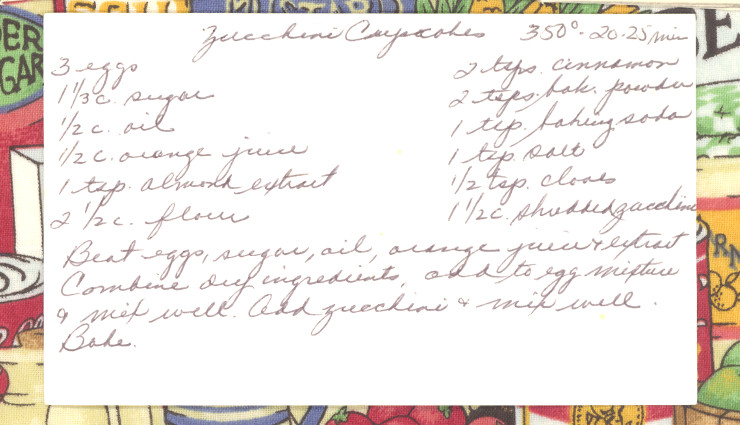 Zucchini Cupcakes 350°-20-25 min
3 eggs
1 1/3 c. sugar
1/2 c. oil
1/2 c. orange juice
1 tsp. almond extract
2 1/2 c. flour
2 tsps. cinnamon
2 tsps. bak. powder
1 tsp. baking soda
1 tsp. salt
1/2 tsp. cloves
1 1/2 c. shredded zucchini
Beat eggs, sugar, oil, orange juice & extract
Combine dry ingredients, add to egg mixture
& mix well. Add zucchini & mix well.
Bake.